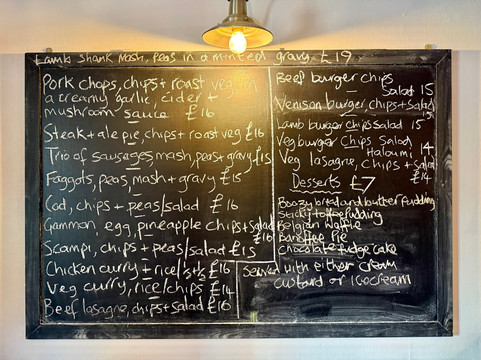 Lamb Shank Mash, Peas in a minted gravy £19
Pork Chops, chips + roast veg in
a creamy garlic, cider +
mushroom sauce £16
Steak + ale pie, chips + roast veg £16
Trio of sausages, mash, peas + gravy £15
Faggots, peas, mash + gravy £15
Cod, chips + peas/salad £16
Gammon egg, pineapple chips + salad
£16
Scampi, chips + peas/salad £15
Chicken curry + rice/½+½ £16
Veg curry, rice/chips £14
Beef lasagne, chips + salad £16
Beef burger chips
Salad 15
Venison burger, chips + salad
15
Lamb burger chips salad 15
Veg burger chips salad,
Haloumi, 14
Veg lasagne, chips + salad
£14
Desserts £7
Boozy bread and butter pudding
Sticky toffee pudding
Belgian Waffle
Banoffee Pie
Chocolate fudge cake
Served with either cream
custard or icecream